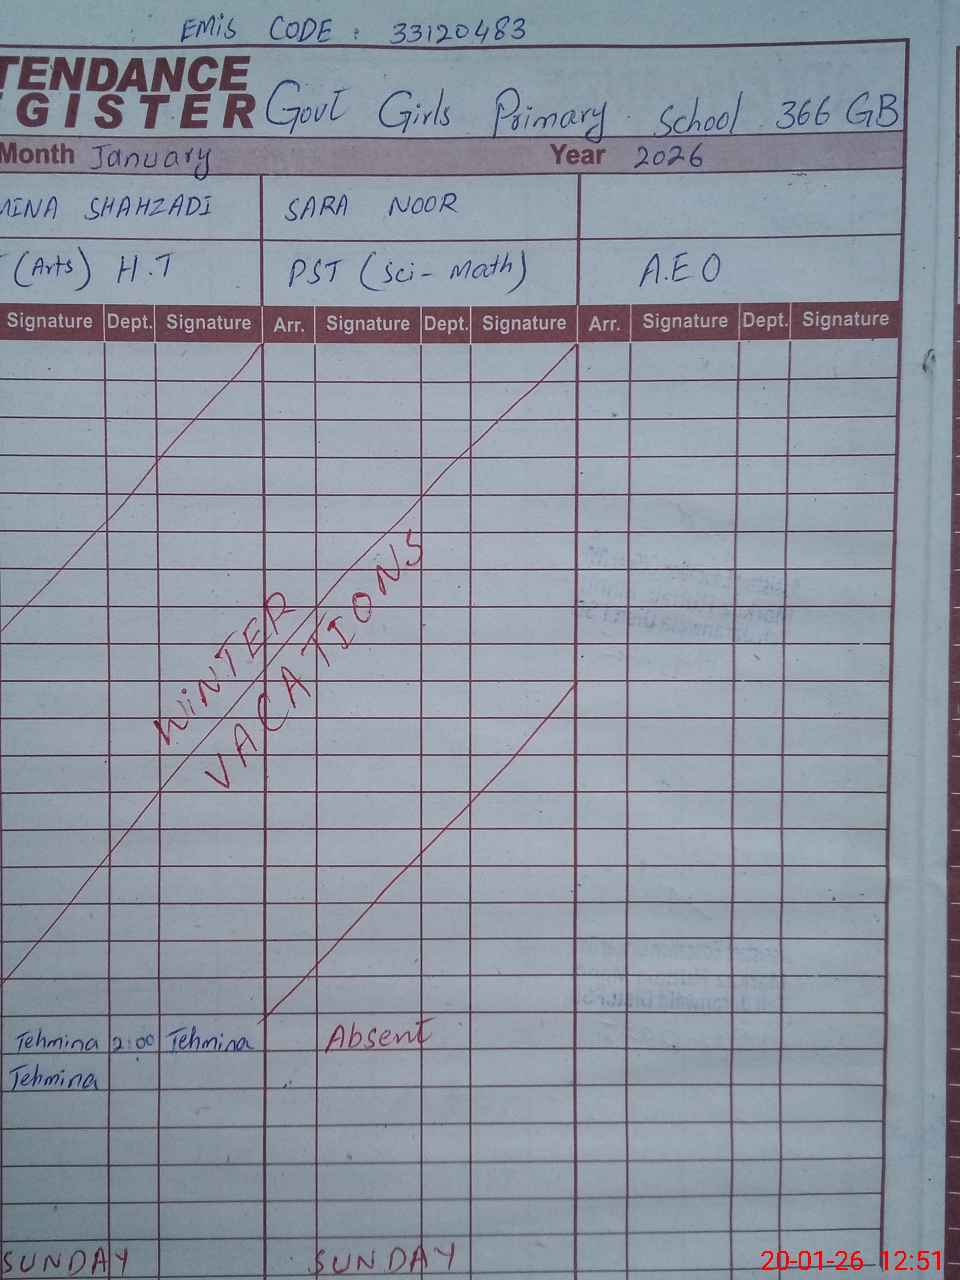 EMIS CODE : 33120483
TENDANCE
GISTER Govt Girls Primary School 366 GB
Month January Year 2026
MINA SHAHZADI SARA NOOR
(Arts) H.T PST (Sci-Math) A.E.O
Signature Dept. Signature Arr. Signature Dept. Signature Arr. Signature Dept. Signature
WINTER
VACATIONS
Tehmina 2:00 Tehmina Absent
Tehmina
SUNDAY SUNDAY
20-01-26 12:51